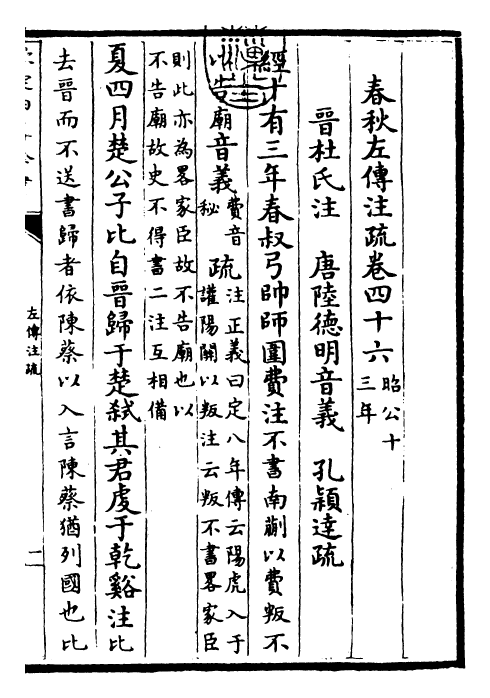 春秋左傳注疏卷四十六昭公十三年
晉杜氏注 唐陸德明音義 孔穎達疏
經十有三年春叔弓帥師圍費注不書南蒯以費叛不
以告廟音義費音秘疏注正義曰定八年傳云陽虎入于讙陽關以叛注云叛不書畧家臣
則此亦為畧家臣故不告廟也以不告廟故史不得書二注互相備
夏四月楚公子比自晉歸于楚弑其君虔于乾谿注比
去晉而不送書歸者依陳蔡以入言陳蔡猶列國也比
左傳注疏